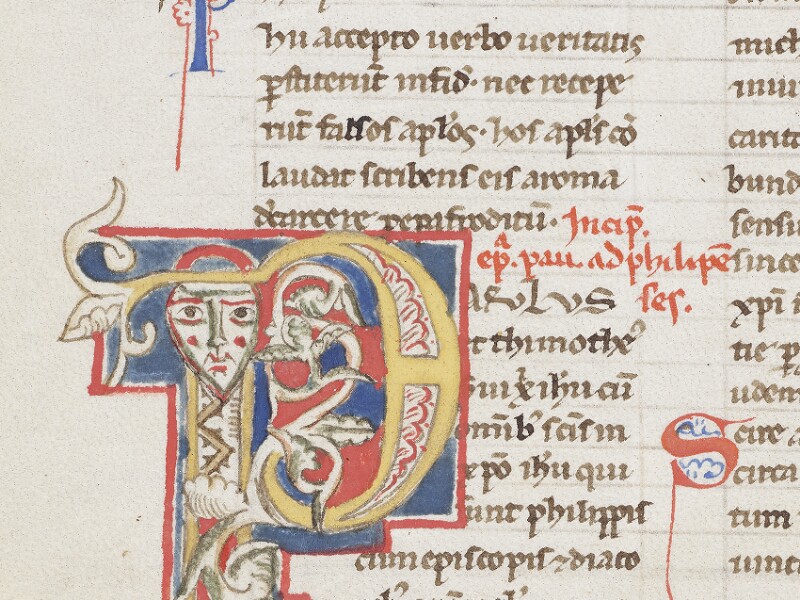 hu accepto uerbo ueritatis
ꝑstiterūt in fid· nec recepe
rūt falsos aplos· hos aplꝰ cō
laudat scribens eis a roma
de carcere per epafroditū· Incip̄.
ep̄ᵃ. pau. ad philipē
ses.
AULUS
et thimotheꝰ
ihu cū
omīb sc̄is in
xpō ihu qui
sunt philippis
cum episcopis ⁊ diaco
mich
carita
bund
sensu
since
xpi i
tie ꝑ
udem
Scire a
circa
tum
uinc